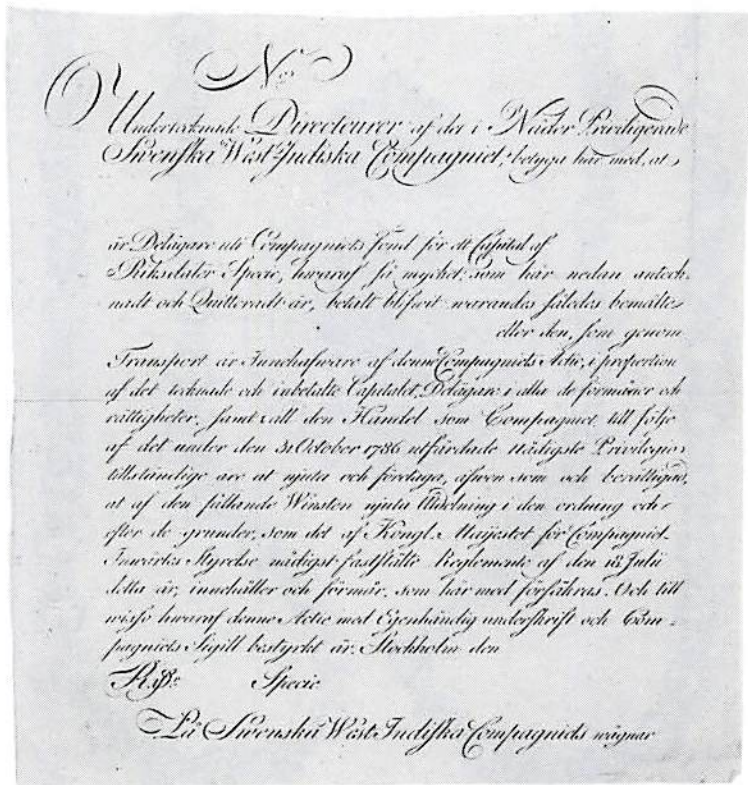 No.
Undertecknade Directeurer af det i Nåder Privilegierade
Swenska West Indiska Compagniet, betyga här med, at
är Delägare uti Compagniets fond för ett Capital af
Riksdaler Specie, hwaraf så mycket, som här nedan anteck-
nadt och Quitteradt är, betalt blifwit warandes således bemälte
eller den, som genom
Transport är Innehafware af denne Compagniets Actie, i proportion
af det tecknade och inbetalte Capitalet, Delägare i alla de förmåner och
rättigheter, samt all den Handel som Compagniet till följe
af det under den 31 October 1786 utfärdade Nådigste Privilegio
tillständige äro at njuta och företaga, äfwen som och berättigad,
at af den fallande Winsten njuta Utdelning i den ordning och
efter de grunder, som det af Kongl. Maijestet för Compagniets
Inwärtes Styrelse nådigst fastställte Reglemente af den 18 Julii
detta år, innehåller och förmår, som här med försäkras. Och till
wisso hwaraf denne Actie med Egenhändig underskrift och Com-
pagniets Sigill bestyrkt är. Stockholm den
Rdr. Specie
På Swenska West Indiska Compagniets wägnar